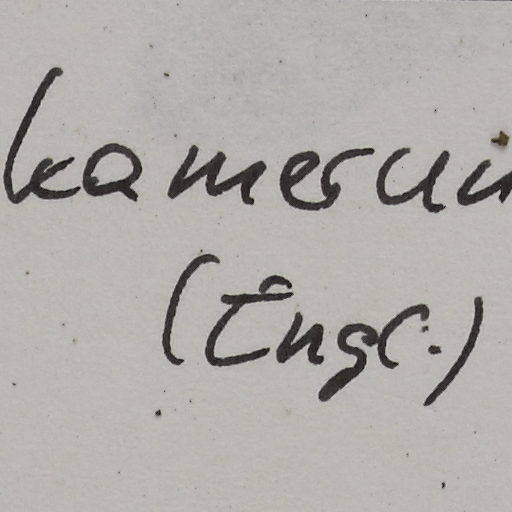 kamerun
(Engl.)